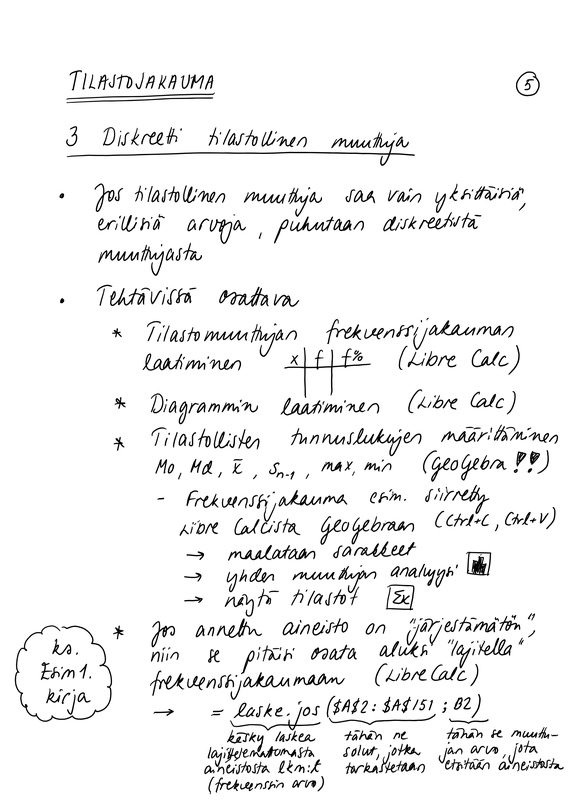 TILASTOJAKAUMA
5
3 Diskreetti tilastollinen muuttuja
• Jos tilastollinen muuttuja saa vain yksittäisiä,
erillisiä arvoja, puhutaan diskreetistä
muuttujasta
• Tehtävissä osattava
* Tilastomuuttujan frekvenssijakauman
laatiminen x | f | f% (Libre Calc)
* Diagrammin laatiminen (Libre Calc)
* Tilastollisten tunnuslukujen määrittäminen
Mo, Md, x̄, sₙ₋₁, max, min (GeoGebra !!)
- Frekvenssijakauma esim. siirretty
Libre Calcista GeoGebraan (Ctrl+C, Ctrl+V)
→ maalataan sarakkeet
→ yhden muuttujan analyysi
→ näytä tilastot Σx
* Jos annettu aineisto on "järjestämätön",
niin se pitäisi osata aluksi "lajitella"
frekvenssijakaumaan (Libre Calc)
ks.
Esim 1.
kirja
→ = laske.jos ($A$2:$A$151 ; B2)
käsky laskea tähän ne tähän se muuttu-
lajittelemattomasta solut, jotka jan arvo, jota
aineistosta lkm:t tarkastetaan etsitään aineistosta
(frekvenssin arvo)